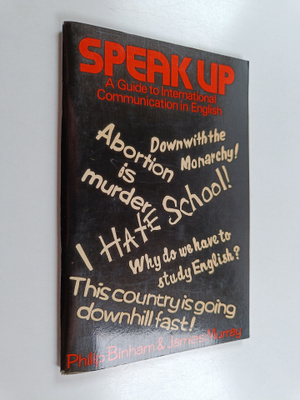 SPEAK UP
A Guide to International
Communication in English
Down with the
Monarchy!
Abortion
is
murder
I HATE School!
Why do we have to
study English?
This country is going
downhill fast!
Philip Binham & James Murray